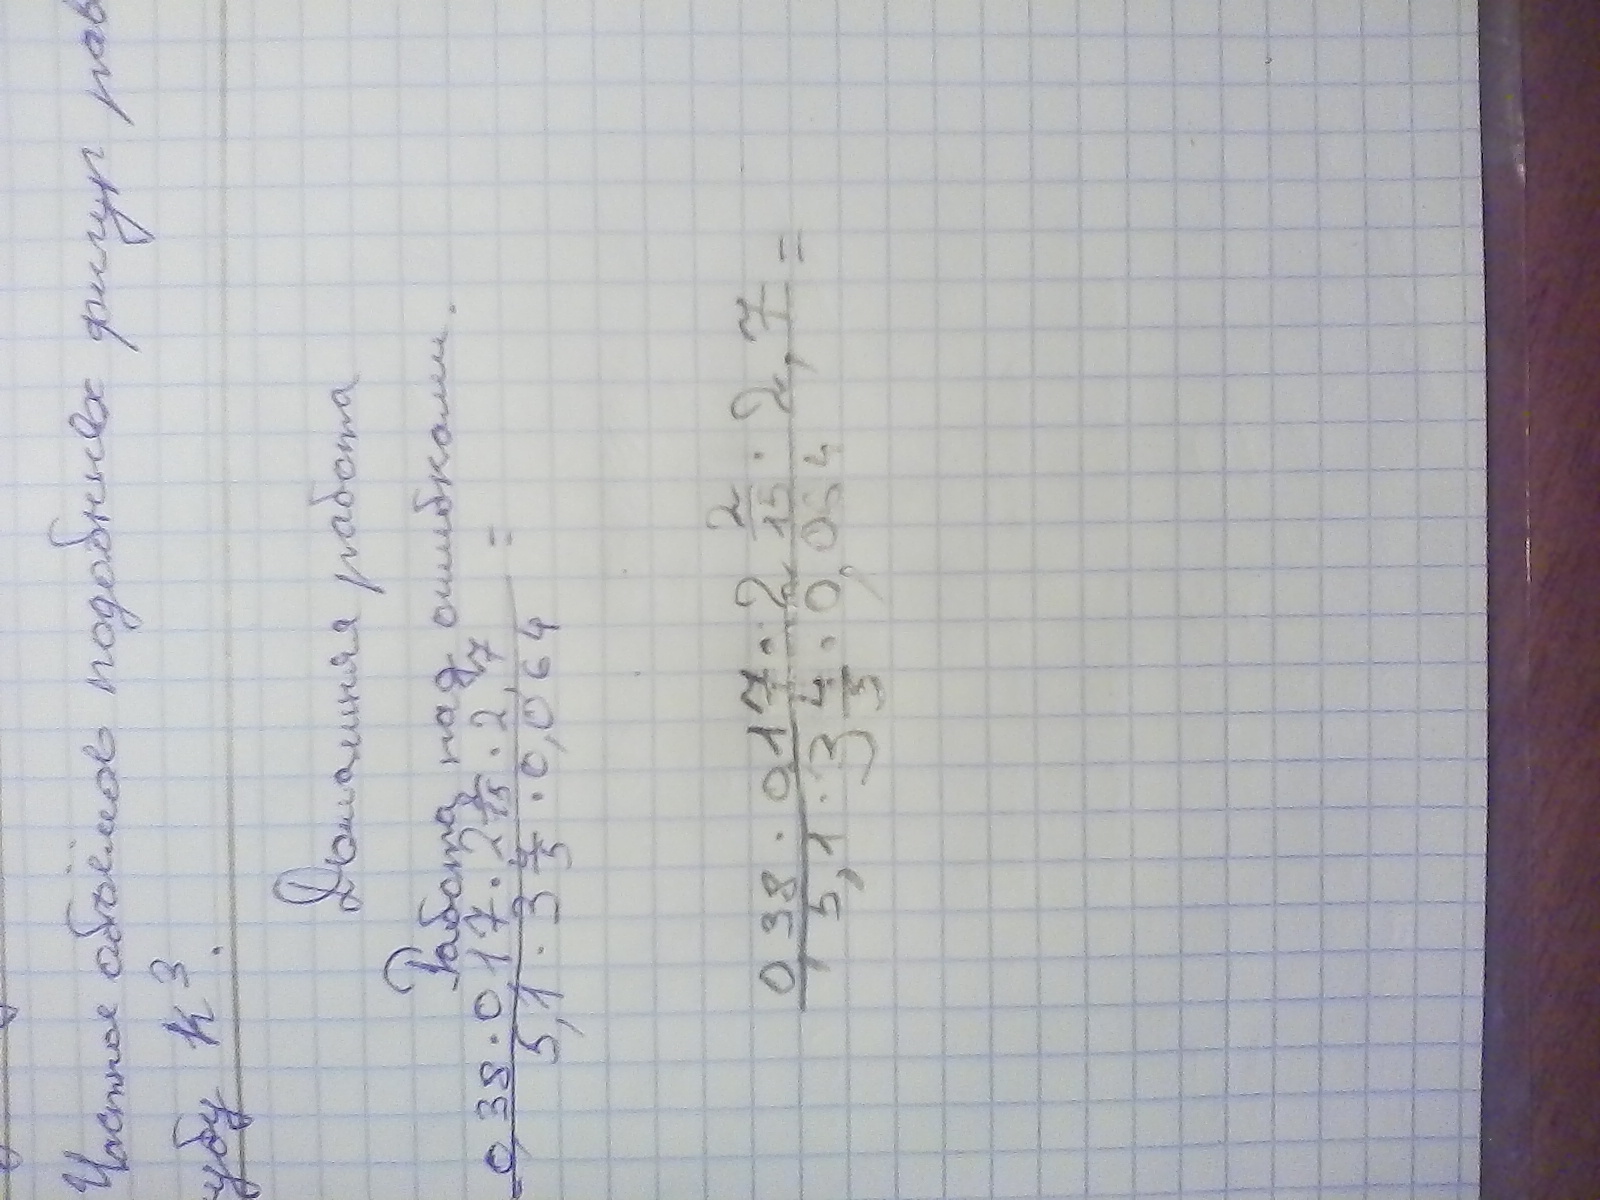 Частное объёмов подобных фигур рав
кубу k³.
Домашняя работа
Работа над ошибками.
0,38 · 017 · 2 2/15 · 2,7 =
5,1 · 3 4/5 · 0,064
0,38 · 017 · 2 2/15 · 2,7 =
5,1 · 3 4/5 · 0,064